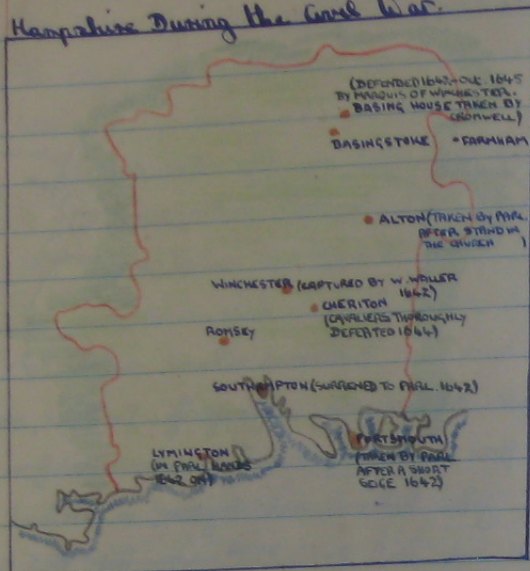 Hampshire During the Civil War.
(DEFENDED 1642-OCT. 1645
BY MARQUIS OF WINCHESTER.
BASING HOUSE TAKEN BY
CROMWELL)
BASINGSTOKE
FARNHAM
ALTON (TAKEN BY PARL.
AFTER STAND IN
THE CHURCH )
WINCHESTER (CAPTURED BY W. WALLER
1642)
CHERITON
(CAVALIERS THOROUGHLY
DEFEATED 1644)
ROMSEY
SOUTHAMPTON (SURRENED TO PARL. 1642)
LYMINGTON
(IN PARL HANDS
1642 ON)
PORTSMOUTH
(TAKEN BY PARL
AFTER A SHORT
SEIGE 1642)